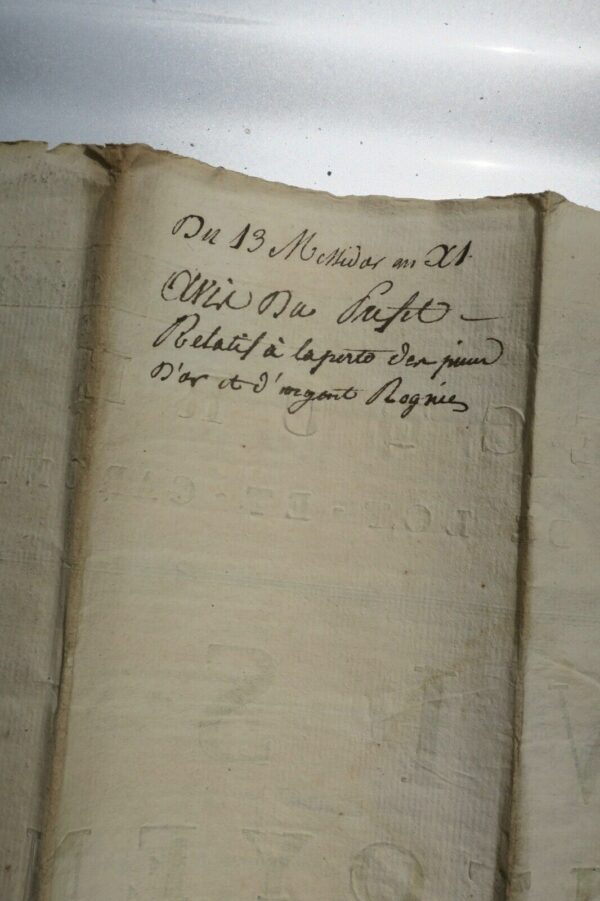 Du 13 Messidor an XI
Avis Du Prefet —
Relatif à la perte des pieces
D'or et d'argent Rognées
LOT - ET - GAR